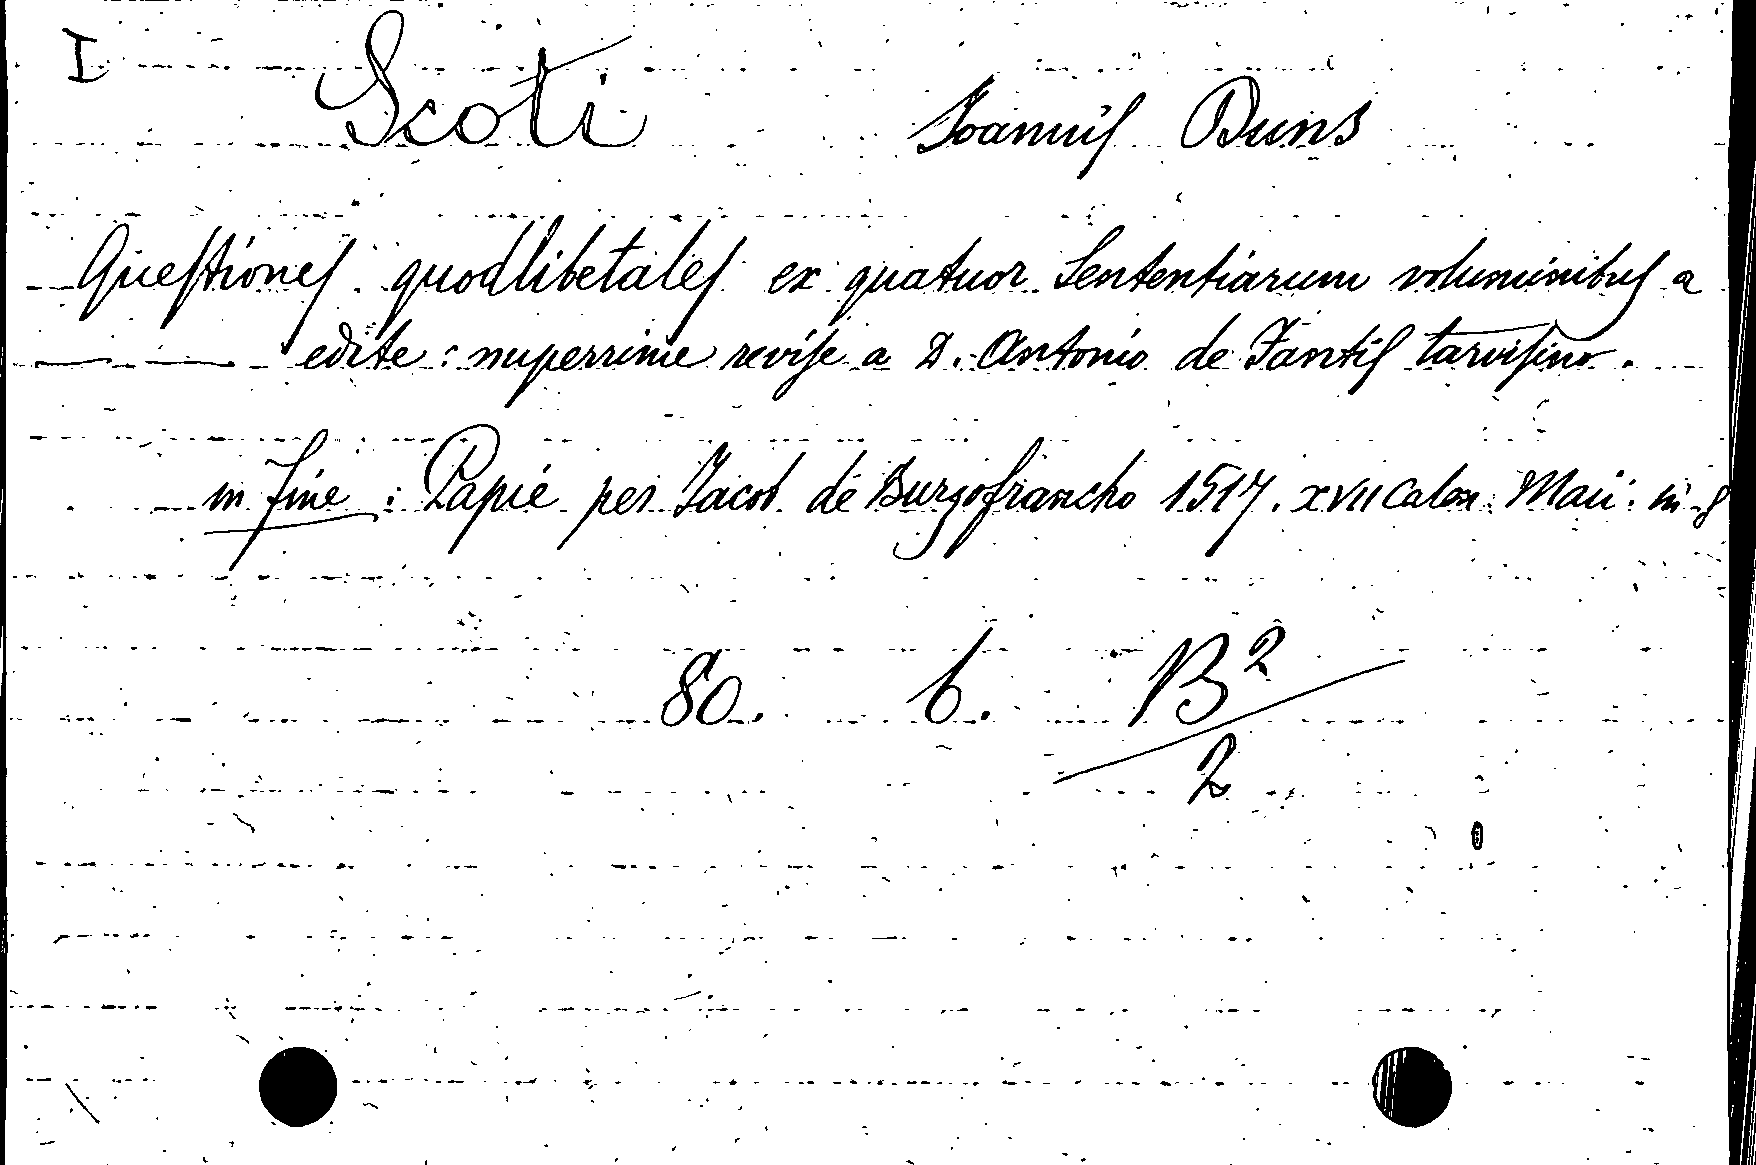 I
Scoti Joannis Duns
Questiones quodlibetales ex quatuor Sententiarum voluminibus a
edite: nuperrime revise a D. Antonio de Fantis tarvisino.
in fine: Papie per Jacob de Burgofrancho 1517. XVII Calen. Maii. in-8
80. 6. B²/2